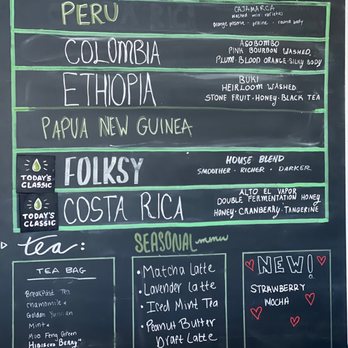 PERU
CAJAMARCA
washed mix varieties
orange blossom · praline · round body
COLOMBIA
ASOBOMBO
PINK BOURBON WASHED
PLUM·BLOOD ORANGE·SILKY BODY
ETHIOPIA
BUKI
HEIRLOOM WASHED
STONE FRUIT·HONEY·BLACK TEA
PAPUA NEW GUINEA
TODAY'S CLASSIC
FOLKSY
HOUSE BLEND
SMOOTHER · RICHER · DARKER
TODAY'S CLASSIC
COSTA RICA
ALTO EL VAPOR
DOUBLE FERMENTATION HONEY
HONEY·CRANBERRY·TANGERINE
tea:
TEA BAG
Breakfast Tea
Chamomile
Golden Yunnan
Mint
Mao Feng Green
Hibiscus "Berry"
SEASONAL menu
• Matcha Latte
• Lavender Latte
• Iced Mint Tea
• Peanut Butter
Draft Latte
NEW!
STRAWBERRY
MOCHA